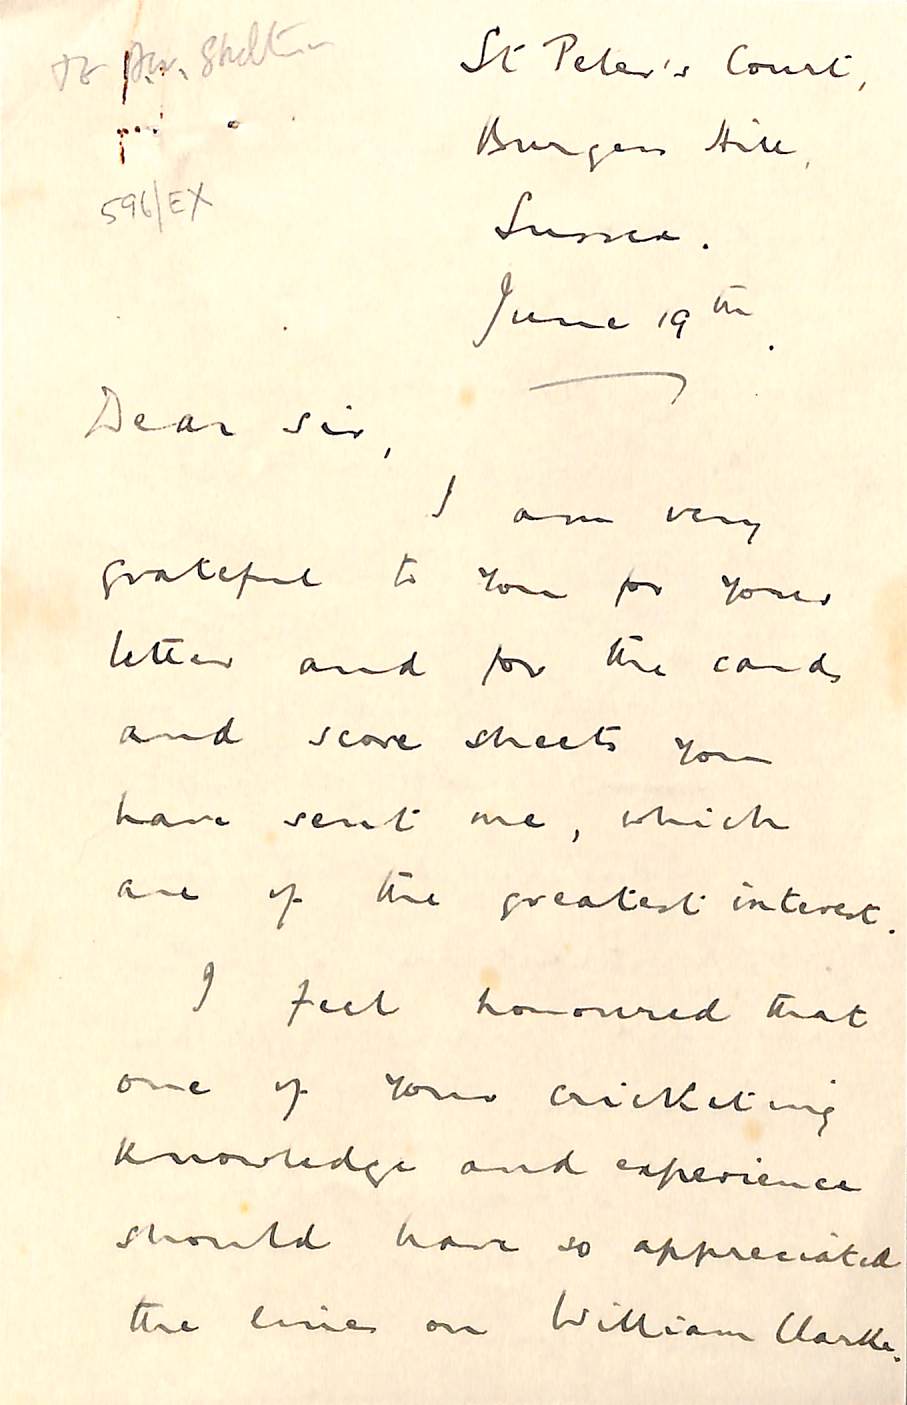 To Mr. Shelton
596/EX
St Peter's Court,
Burgess Hill,
Sussex.
June 19th.
Dear Sir,
I am very
grateful to you for your
letter and for the cards
and score sheets you
have sent me, which
are of the greatest interest.
I feel honoured that
one of your cricketing
knowledge and experience
should have so appreciated
the lines on William Clarke.